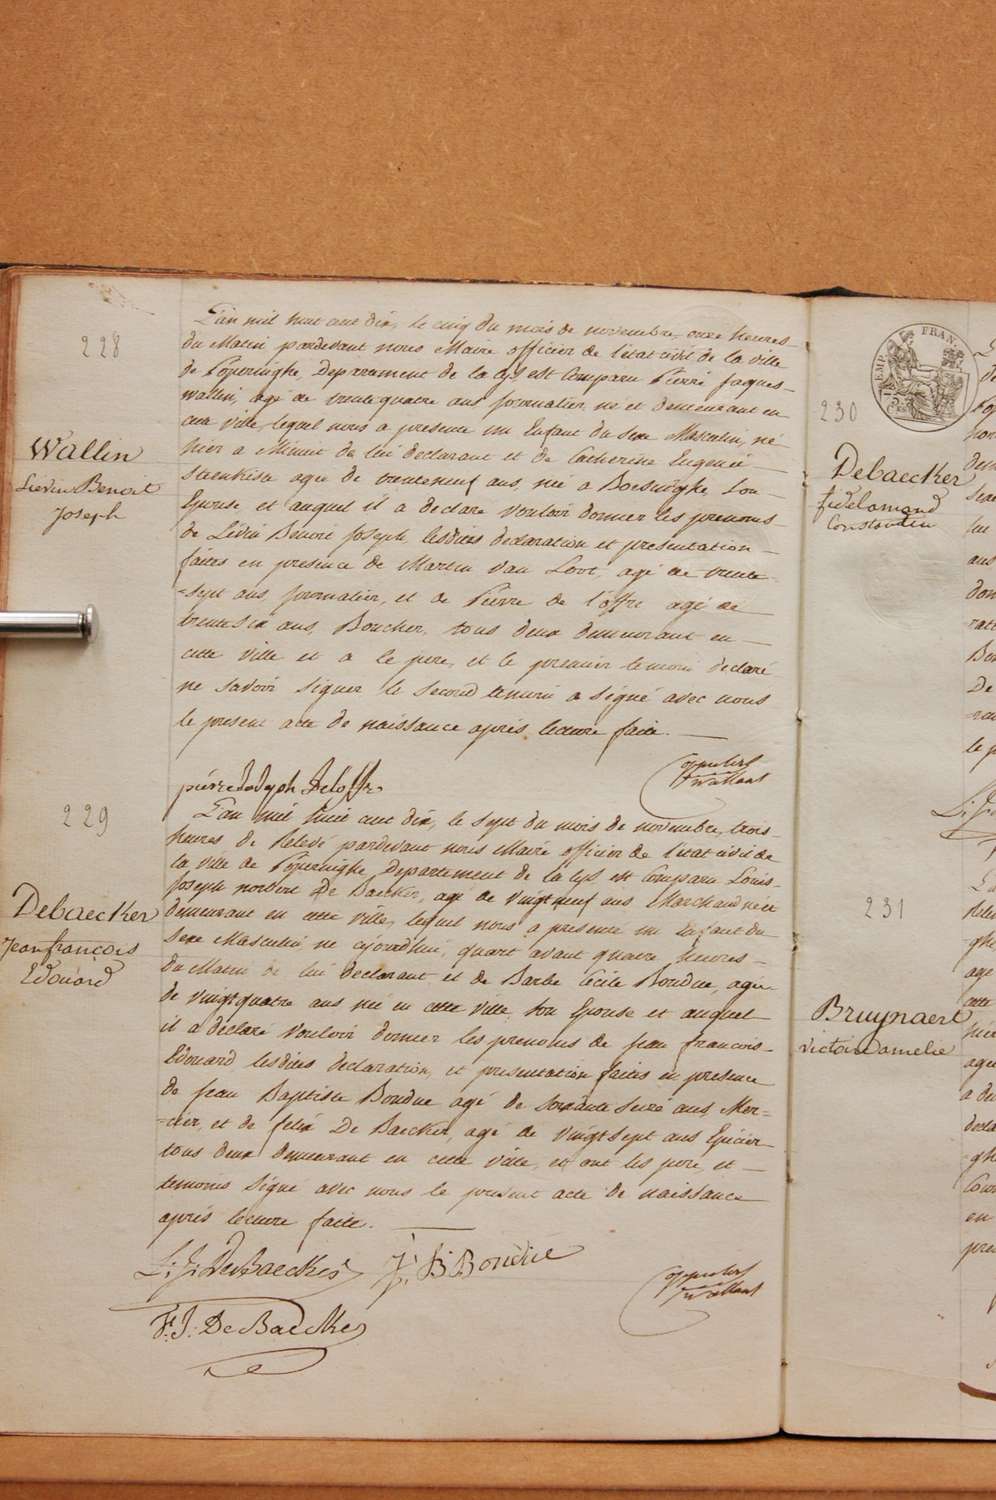 228
Wallin
Lievin Benoit
Joseph
L'an mil huit cent dix, le cinq du mois de novembre, onze heures
du Matin pardevant nous Maire officier de l'état civil de la ville
de Poperinghe, Departement de la Lys est Comparu Pierre Jaques
Wallin, agé de trentequatre ans journalier, né et demeurant en
cette ville, lequel nous a presenté un Enfant du sexe Masculin, né
hier a Minuit de lui declarant et de Catherine Eugenie
Steenkiste agee de trenteneuf ans, née a Boesinghe, son
Epouse et auquel il a declaré vouloir donner les prenoms
de Liévin Benoit Joseph lesdites declaration et presentation
faites en presence de Martin Van Loot, agé de trente
=sept ans journalier, et de Pierre de l'offre agé de
trentesix ans, Boucher, tous deux demeurant en
cette ville et a le pere, et le premier temoin declaré
ne savoir signer le second temoin a signé avec nous
le present acte de naissance après lecture faite.
pierre Delaffre
229
Debaecker
Jean françois
Edouard
L'an mil huit cent dix, le sept du mois de novembre, trois
heures de Relevé pardevant nous Maire officier de l'état civil de
la ville de Poperinghe, Departement de la Lys est Comparu Louis
Joseph norbert De Baecker, agé de vingtneuf ans Marchand né et
demeurant en cette ville, lequel nous a presenté un Enfant du
sexe Masculin né aujourdhui, quart avant quatre heures
du Matin de lui declarant et de Barbe Cécile Boudue, agée
de vingtquatre ans née en cette ville, son Epouse et auquel
il a declaré vouloir donner les prenoms de Jean françois
Edouard lesdites declaration, et presentation faites en presence
de Jean Baptiste Boudue agé de soixante seize ans, Mer=
=cier, et de felix De Baecker, agé de vingtsept ans Epicier
tous deux demeurant en cette ville, et ont les pere, et
temoins signé avec nous le present acte de naissance
après lecture faite.
L. J. DeBaecker
J. B. Boudue
F. J. De Baecker
EMP. FRAN.
230
Debaecker
fidel amand
Constantin
231
Bruynaert
victoire amelie